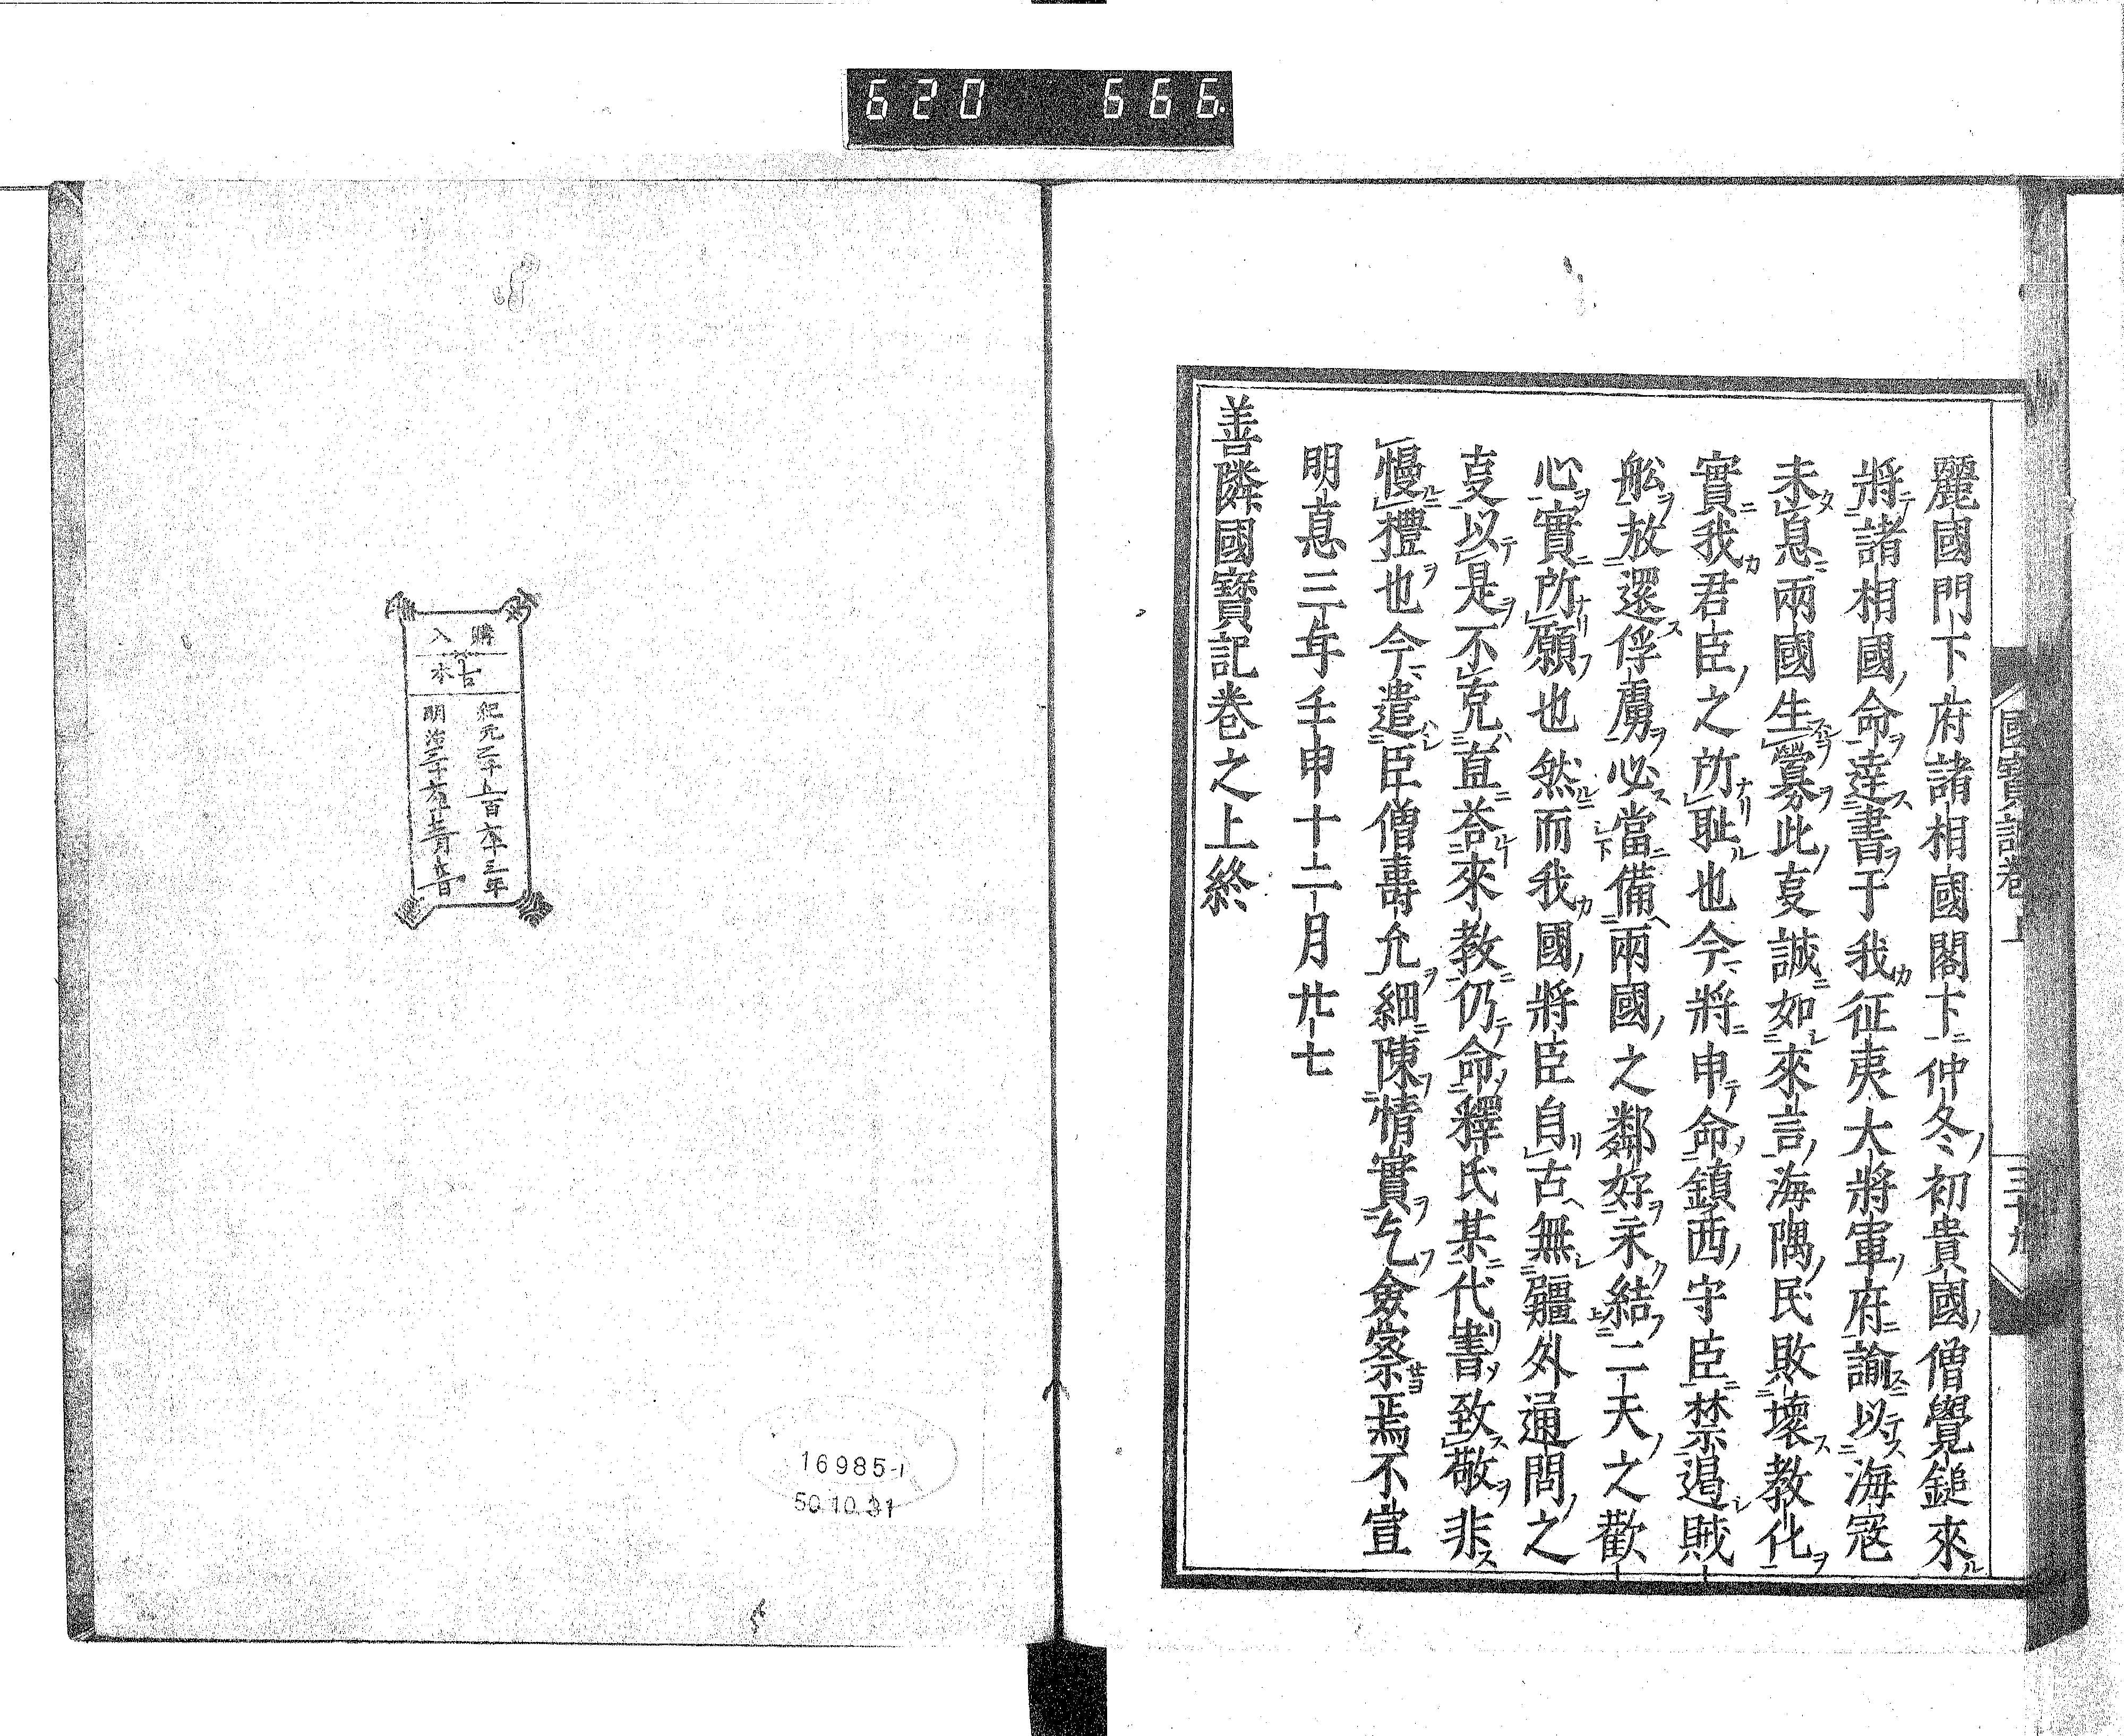 620 666
國寶記卷上
三十九
麗國門下府諸相國閣下仲冬初貴國僧覺鎚來
將諸相國命達書于我征夷大將軍府諭以海寇
未息兩國生釁此㕝誠如來言海隅民敗壞教化
實我君臣之所耻也今將申命鎮西守臣禁遏賊
舩放還俘虜必當備兩國之鄰好永結二天之歡
心實所願也然而我國將臣自古無疆外通問之
㕝以是不克直荅來教仍命釋氏某代書致敬非
慢禮也今遣臣僧壽允細陳情實乞僉察焉不宣
明惪三年壬申十二月廿七
善隣國寳記卷之上終
購入
古本
紀元二千五百六十三年
明治三十六年
16985-1
50.10.31